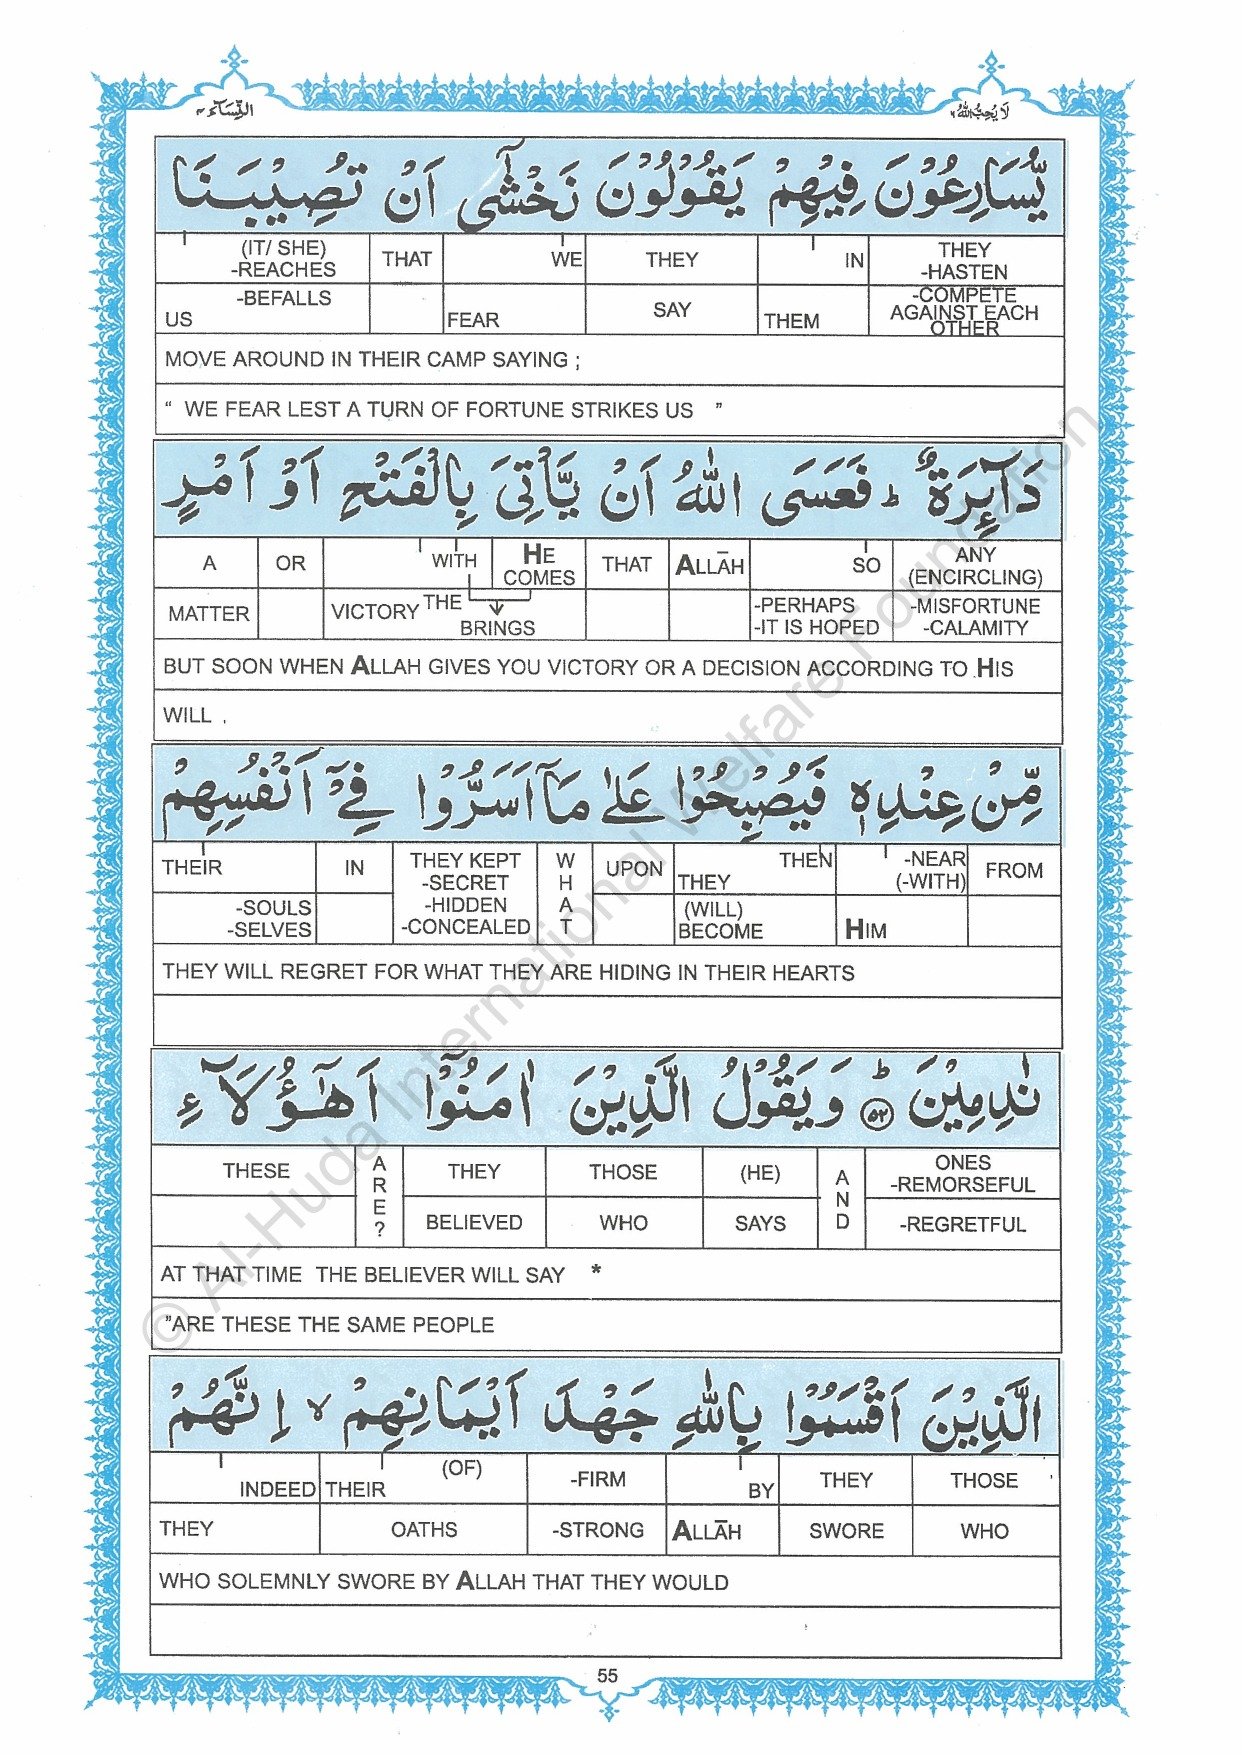 النِّسَآء ٤
لَا يُحِبُّ اللّٰهُ ٦
يُّسَارِعُوْنَ فِيْهِمْ يَقُوْلُوْنَ نَخْشٰٓى اَنْ تُصِيْبَنَا
(IT/ SHE) THAT WE THEY IN THEY
-REACHES -HASTEN
-BEFALLS SAY -COMPETE
US FEAR THEM AGAINST EACH
OTHER
MOVE AROUND IN THEIR CAMP SAYING ;
“ WE FEAR LEST A TURN OF FORTUNE STRIKES US ”
دَآئِرَةٌ ؕ فَعَسَى اللّٰهُ اَنْ يَّاْتِىَ بِالْفَتْحِ اَوْ اَمْرٍ
A OR WITH HE THAT ALLĀH SO ANY
COMES (ENCIRCLING)
MATTER VICTORY THE -PERHAPS -MISFORTUNE
BRINGS -IT IS HOPED -CALAMITY
BUT SOON WHEN ALLAH GIVES YOU VICTORY OR A DECISION ACCORDING TO HIS
WILL .
مِّنْ عِنْدِهٖ فَيُصْبِحُوْا عَلٰى مَآ اَسَرُّوْا فِىْٓ اَنْفُسِهِمْ
THEIR IN THEY KEPT WHAT UPON THEN -NEAR FROM
-SECRET THEY (-WITH)
-SOULS -HIDDEN (WILL)
-SELVES -CONCEALED BECOME HIM
THEY WILL REGRET FOR WHAT THEY ARE HIDING IN THEIR HEARTS
نٰدِمِيْنَ ؕ ۵۲ وَيَقُوْلُ الَّذِيْنَ اٰمَنُوْٓا اَهٰٓؤُلَآءِ
THESE ARE? THEY THOSE (HE) AND ONES
-REMORSEFUL
BELIEVED WHO SAYS -REGRETFUL
AT THAT TIME THE BELIEVER WILL SAY *
”ARE THESE THE SAME PEOPLE
الَّذِيْنَ اَقْسَمُوْا بِاللّٰهِ جَهْدَ اَيْمَانِهِمْ ۙ اِنَّهُمْ
INDEED THEIR (OF) -FIRM BY THEY THOSE
THEY OATHS -STRONG ALLĀH SWORE WHO
WHO SOLEMNLY SWORE BY ALLAH THAT THEY WOULD
55
© Al-Huda International Welfare Foundation